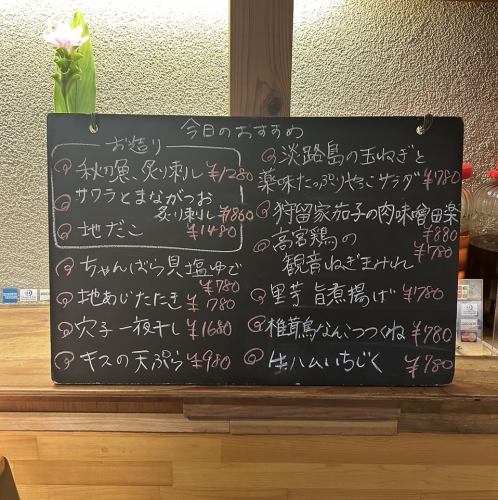 今日のおすすめ
お造り
秋刀魚、炙り刺し ¥1280
サワラとまながつお
炙り刺し ¥860
地だこ ¥1480
ちゃんばら貝塩ゆで
¥780
地あじたたき ¥780
穴子一夜干し ¥1680
キスの天ぷら ¥980
淡路島の玉ねぎと
薬味たっぷりやっこサラダ ¥780
狩留家茄子の肉味噌田楽
¥880
高宮鶏の
観音ねぎまみれ ¥780
里芋旨煮揚げ ¥780
椎茸鳥なんこつつくね ¥780
生ハムいちじく ¥780